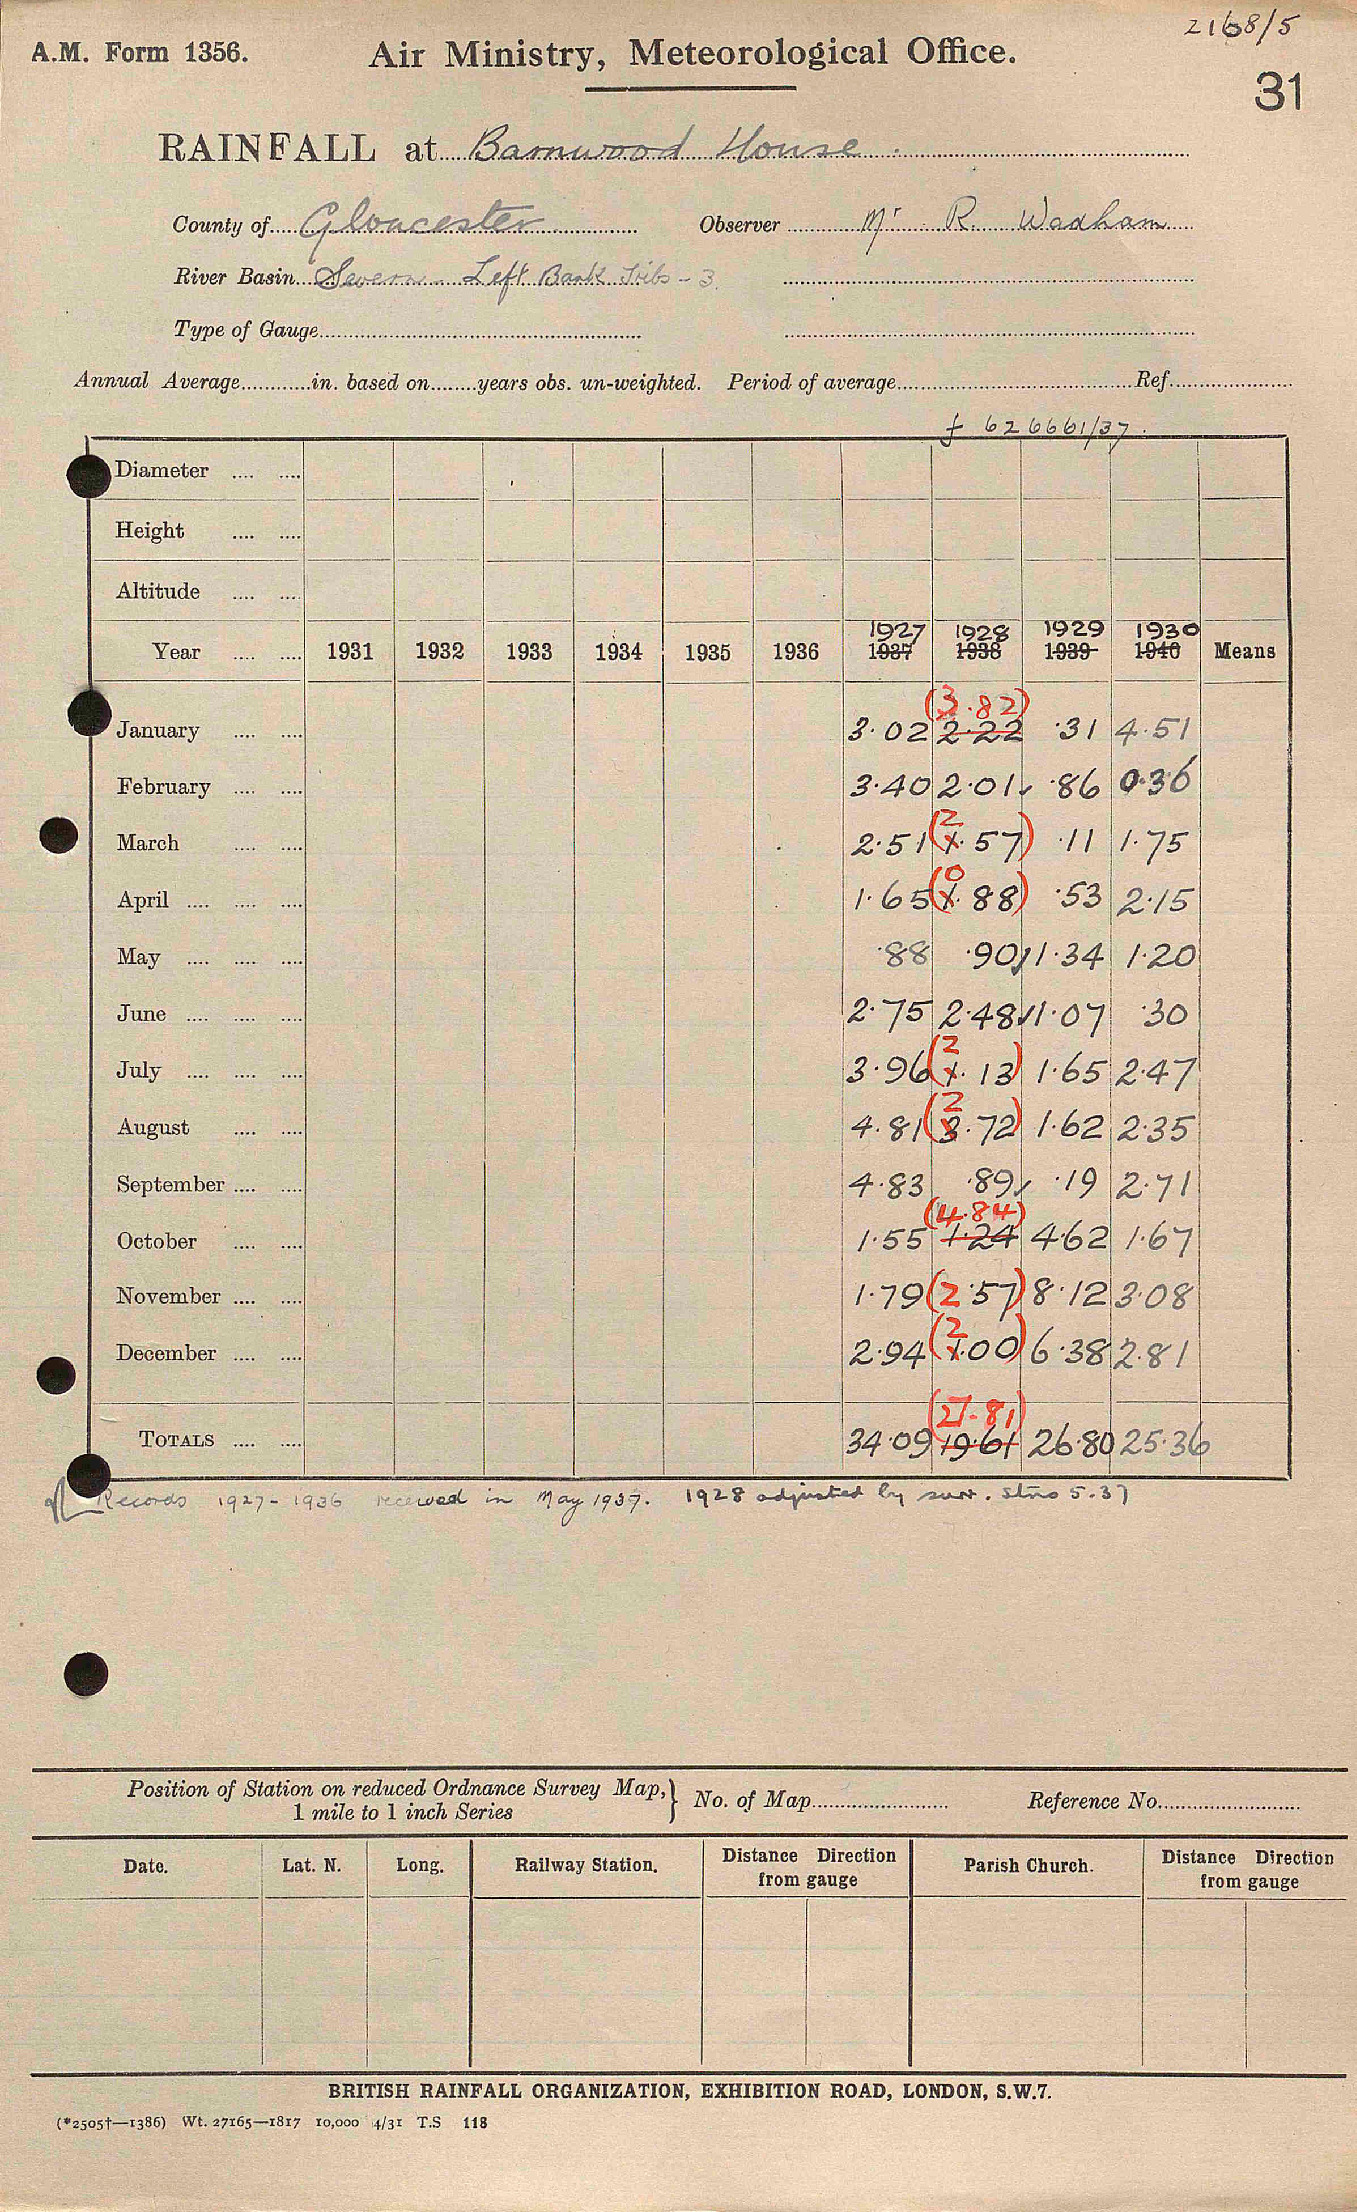 2168/5
A.M. Form 1356. Air Ministry, Meteorological Office.
31
RAINFALL at Barnwood House.
County of Gloucester Observer Mr R. Wadham
River Basin Severn - Left Bank Tribs - 3
Type of Gauge
Annual Average in. based on years obs. un-weighted. Period of average Ref.
f 626661/37.
Diameter
Height
Altitude
1927 1928 1929 1930
Year 1931 1932 1933 1934 1935 1936 1937 1938 1939 1940 Means
(3.82)
January 3.02 2.22 .31 4.51
February 3.40 2.01 .86 0.36
2
March 2.51 (1.57) .11 1.75
0
April 1.65 (1.88) .53 2.15
May .88 .90 1.34 1.20
June 2.75 2.48 1.07 .30
2
July 3.96 (1.13) 1.65 2.47
2
August 4.81 (3.72) 1.62 2.35
September 4.83 .89 .19 2.71
(4.84)
October 1.55 1.24 4.62 1.67
November 1.79 (2.57) 8.12 3.08
2
December 2.94 (1.00) 6.38 2.81
(27.81)
TOTALS 34.09 19.61 26.80 25.36
Records 1927-1936 received in May 1937. 1928 adjusted by surr. stns 5.37
Position of Station on reduced Ordnance Survey Map,} No. of Map Reference No.
1 mile to 1 inch Series
Date. Lat. N. Long. Railway Station. Distance Direction from gauge Parish Church. Distance Direction from gauge
BRITISH RAINFALL ORGANIZATION, EXHIBITION ROAD, LONDON, S.W.7.
(*2505†—1386) Wt. 27165—1817 10,000 4/31 T.S 118